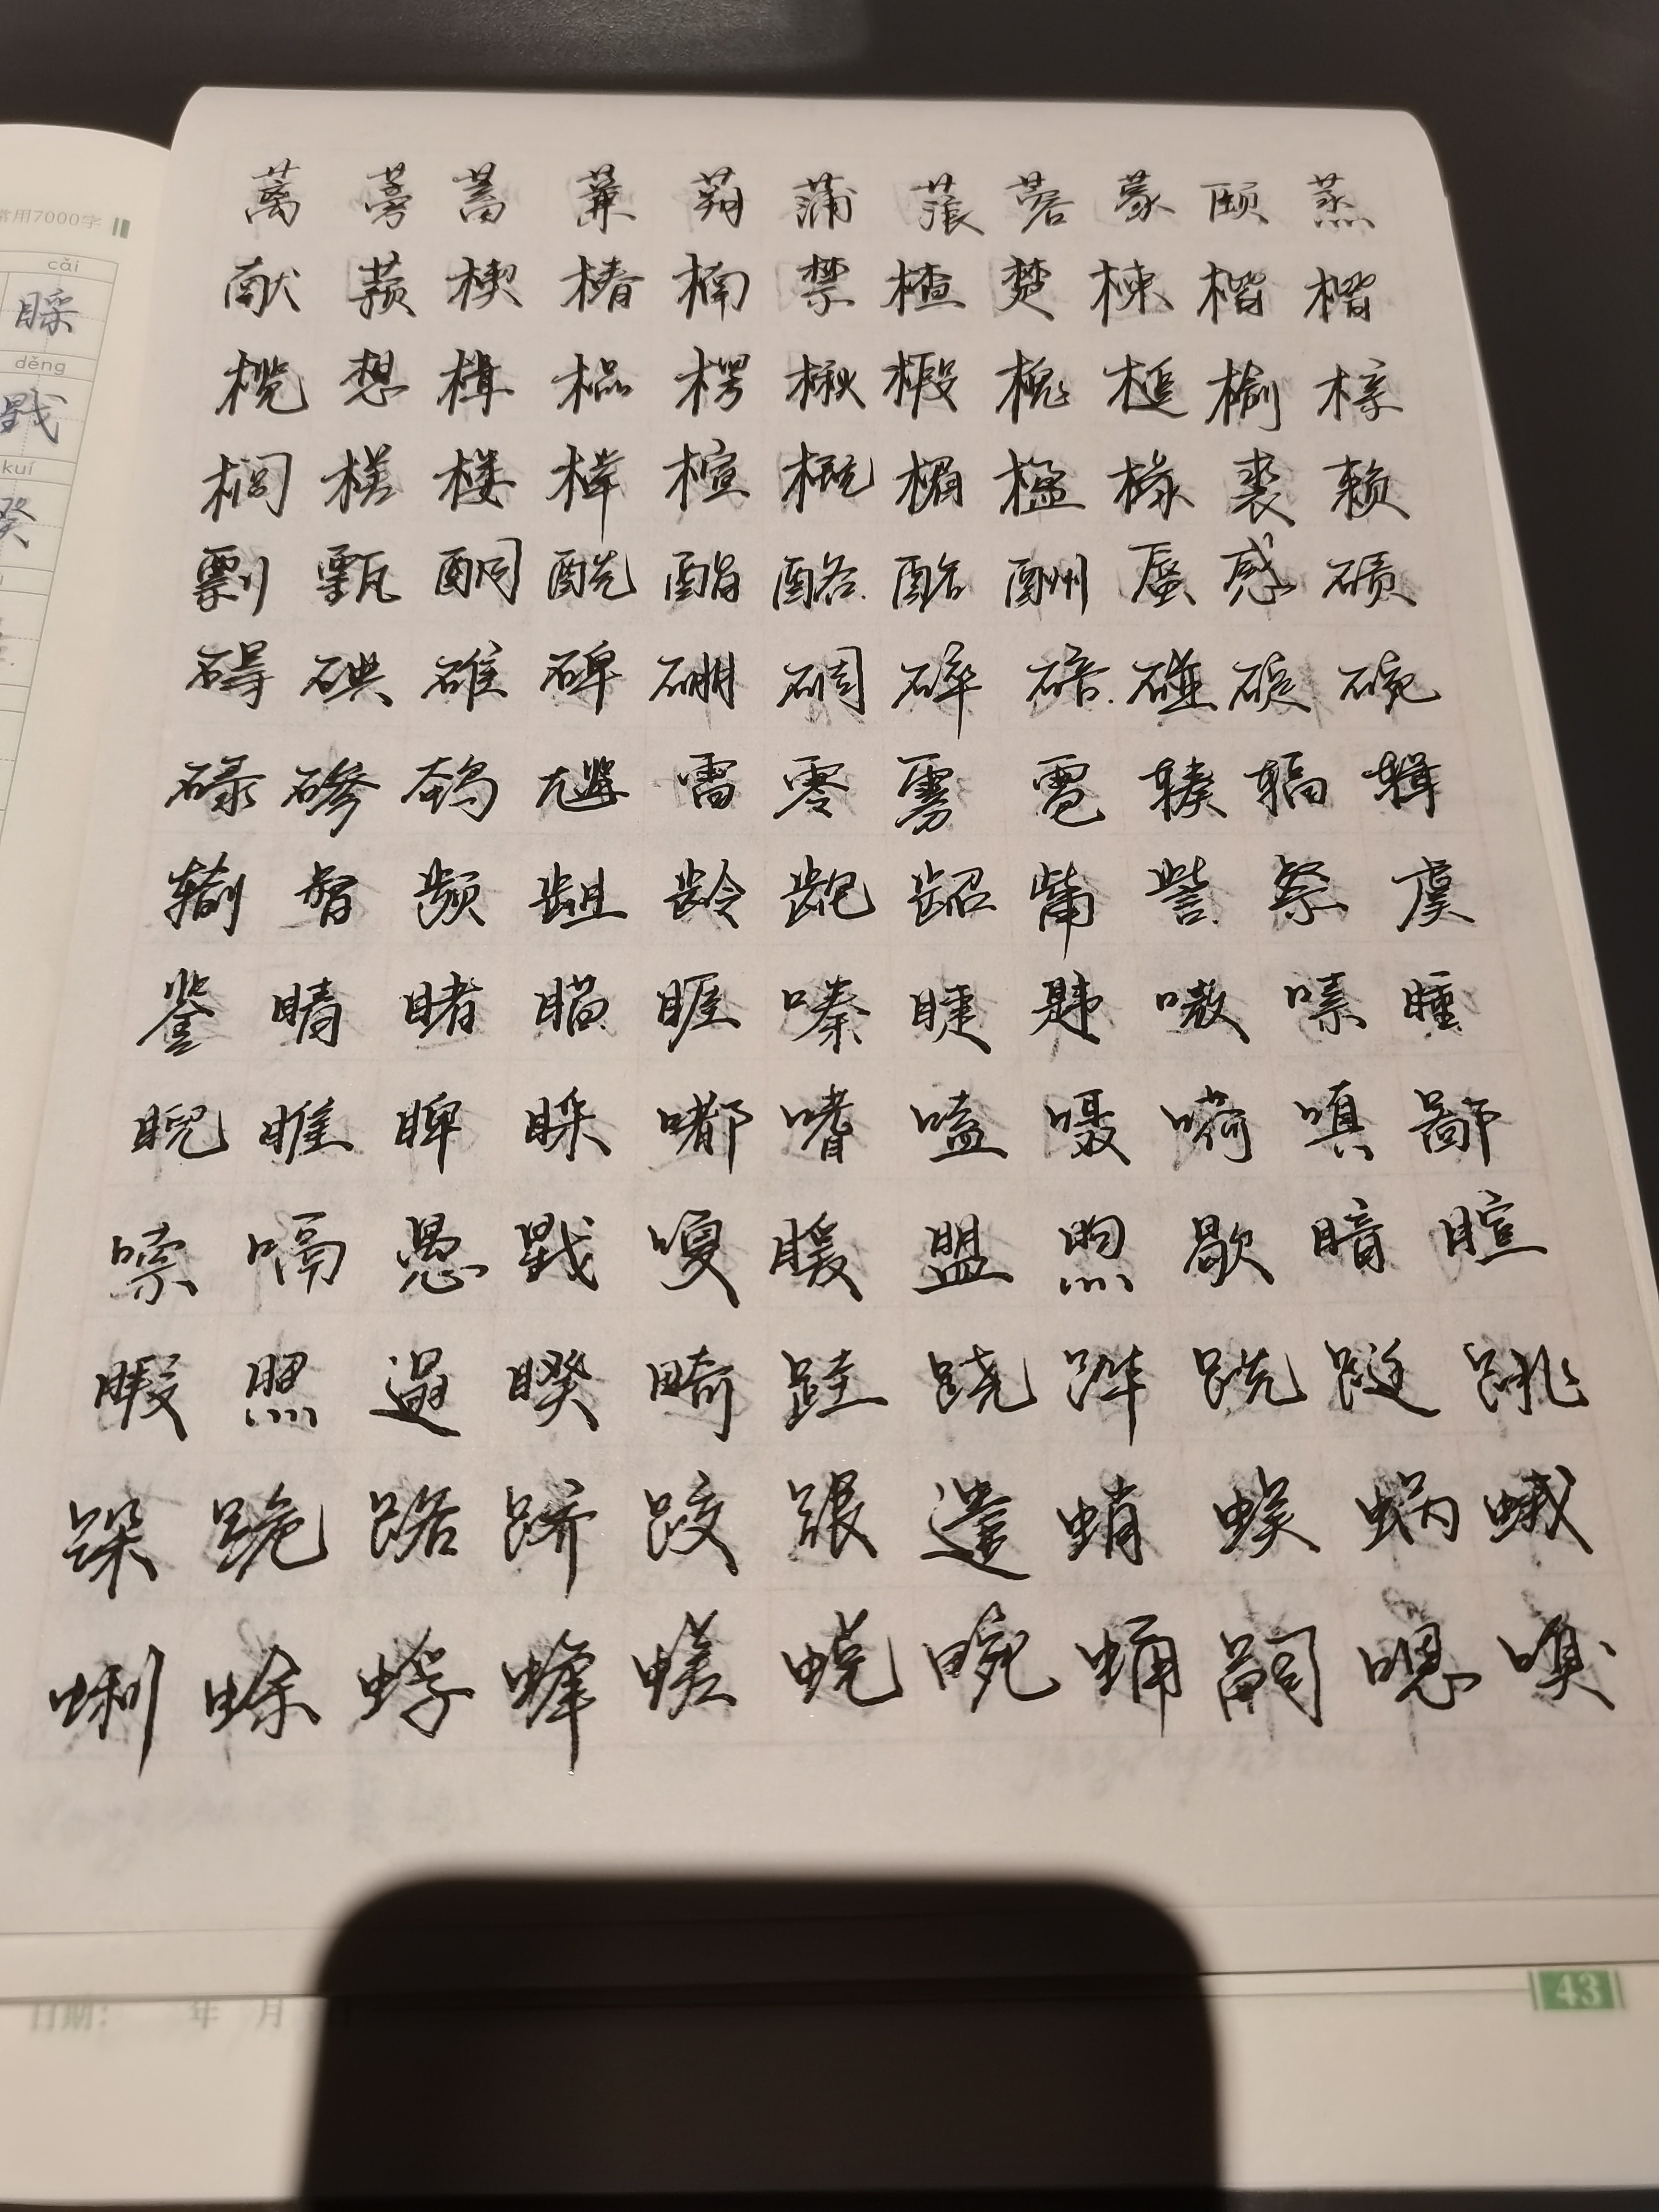 常用7000字
cǎi
睬
děng
戥
kuí
暌
蓠 蒡 蓄 蒹 蒴 蒲 蒗 蓉 蒙 颐 蒸
献 蓣 楔 椿 楠 禁 楂 楚 楝 楷
榄 想 楫 榀 楞 楸 椴 槐 槌 榆 榇
榈 槎 楼 榉 楦 概 楣 楹 椽 裘 赖
剽 甄 酮 酰 酯 酩 酪 酬 蜃 感 碛
碍 碘 碓 碑 硼 碉 碎 碚 碰 碇 碗
碌 碜 鹌 尴 雷 零 雾 雹 辏 辐 辑
输 督 频 龃 龄 龅 龆 觜 訾 粲 虞
鉴 睛 睹 瞄 睚 嗪 睫 韪 嗷 嗉 睡
睨 睢 睥 睬 嘟 嗜 嗑 嗫 嗬 嗔 鄙
嗦 嗝 愚 戥 嗄 暖 盟 煦 歇 暗 暄
暇 照 遢 暌 畸 跬 跷 跸 跣 跹 跳
跺 跪 路 跻 跤 跟 遣 蛸 蜈 蜗 蛾
蜊 蜍 蜉 蜂 蜣 蜕 畹 蛹 嗣 嗯 嗅
日期: 年 月
43